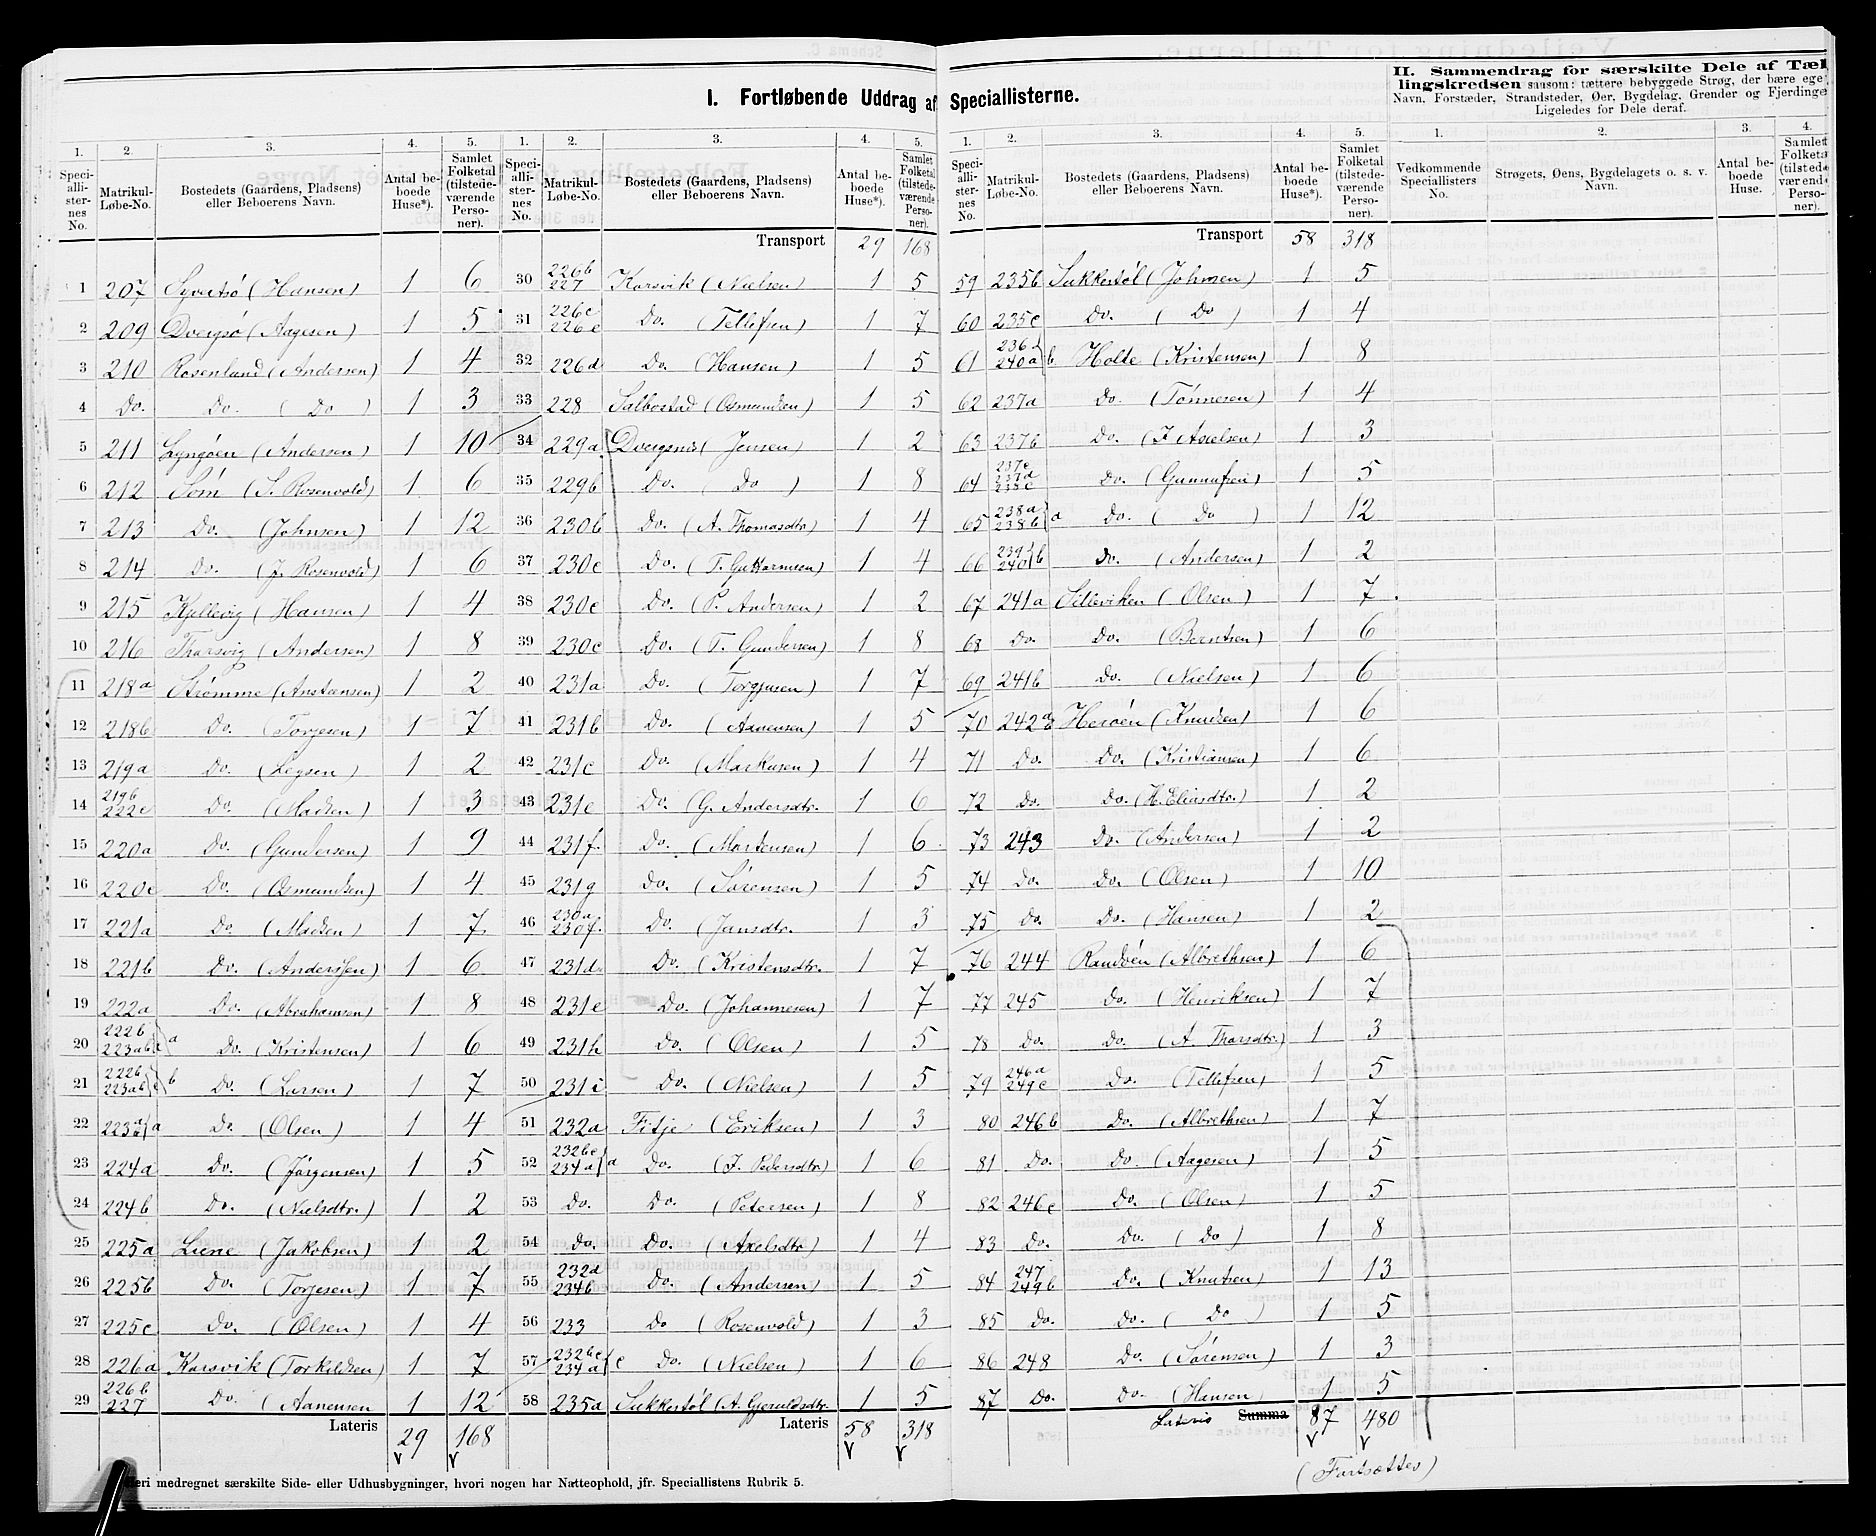 I. Fortløbende Uddrag af Speciallisterne.
II. Sammendrag for særskilte Dele af Tæl
lingskredsen saasom: tættere bebyggede Strøg, der bære ege
Navn, Forstæder, Strandsteder, Øer, Bygdelag, Grender og Fjerdinge
Ligeledes for Dele deraf.
1. 2. 3. 4. 5.
Speciallisternes No. Matrikul-Løbe-No. Bostedets (Gaardens, Pladsens) eller Beboerens Navn. Antal beboede Huse*). Samlet Folketal (tilstedeværende Personer).
1 207 Syvertsø (Hansen) 1 6
2 209 Dvergsø (Aagesen) 1 5
3 210 Rosenlund (Andersen) 1 4
4 Do. Do. (Do) 1 3
5 211 Lyngøen (Andersen) 1 10
6 212 Søm (S. Rosenvold) 1 6
7 213 Do. (Johnsen) 1 12
8 214 Do. (J. Rosenvold) 1 6
9 215 Kjellevig (Hansen) 1 4
10 216 Tharsvig (Andersen) 1 8
11 218a Strømme (Anstensen) 1 2
12 218b Do. (Torjesen) 1 7
13 219a Do. (Legsen) 1 2
14 219b 222c Do. (Madsen) 1 3
15 220a Do. (Gundersen) 1 9
16 220c Do. (Osmundsen) 1 4
17 221a Do. (Madsen) 1 7
18 221b Do. (Andersen) 1 6
19 222a Do. (Abrahamsen) 1 8
20 222b 223ab a Do. (Kristensen) 1 6
21 222b 223ab b Do. (Larsen) 1 7
22 223 a Do. (Olsen) 1 4
23 224a Do. (Jørgensen) 1 5
24 224b Do. (Nielsdtr.) 1 2
25 225a Liene (Jakobsen) 1 2
26 225b Do. (Torjesen) 1 7
27 225c Do. (Olsen) 1 4
28 226a Korsvik (Torkildsen) 1 7
29 226b 227 Do. (Aanensen 1 12
Lateris 29 168
1. 2. 3. 4. 5.
Speciallisternes No. Matrikul-Løbe-No. Bostedets (Gaardens, Pladsens) eller Beboerens Navn. Antal beboede Huse*). Samlet Folketal (tilstedeværende Personer).
Transport 29 168
30 226b 227 Korsvik (Nielsen) 1 5
31 226c 226e Do. (Tellefsen) 1 7
32 226d Do. (Hansen) 1 5
33 228 Salbostad (Osmundsen) 1 5
34 229a Dvergsnes (Jensen) 1 2
35 229b Do. (Do) 1 8
36 230b Do. (A. Thomasdtr.) 1 4
37 230c Do. (T. Guttormsen) 1 4
38 230e Do. (P. Andersen) 1 2
39 230c Do. (T. Gundersen) 1 8
40 231a Do. (Torgjusen) 1 7
41 231b Do. (Aanensen) 1 5
42 231c Do. (Markusen) 1 4
43 231e Do. (G. Andersdtr. 1 6
44 231f. Do. (Mortensen) 1 6
45 231g Do. (Sørensen) 1 5
46 230a 230f. Do. (Jansdtr. 1 3
47 231d. Do. (Kristensdtr. 1 7
48 231e Do. (Johannesen) 1 7
49 231h Do. (Olsen) 1 5
50 231i Do. (Nielsen) 1 5
51 232a Fidje (Eriksen) 1 3
52 232bc 234a a Do. (J. Pedersdtr.) 1 6
53 Do. Do. (Petersen) 1 8
54 Do. Do. (Axelsdtr.) 1 4
55 232d 234b Do. (Andersen) 1 5
56 233 Do (Rosenvold) 1 3
57 232bc 234a c Do. (Nielsen) 1 6
58 235a Sukkestøl (A. Gjeruldsdtr. 1 5
Lateris 58 318
1. 2. 3. 4. 5.
Speciallisternes No. Matrikul-Løbe-No. Bostedets (Gaardens, Pladsens) eller Beboerens Navn. Antal beboede Huse*). Samlet Folketal (tilstedeværende Personer).
Transport 58 318
59 235b Sukkestøl (Johnsen) 1 5
60 235c Do. (Do) 1 4
61 236 240a b Holte (Kristensen) 1 8
62 237a Do. (Tønnesen) 1 4
63 237b Do. (J. Axelsen) 1 3
64 237c 237d Do. 1 5
65 238a 238b a Do. (Do) 1 12
66 239 240 b Do. (Andersen) 1 2
67 241a Silleviken (Olsen) 1 7
68 Do. Do. (Berntsen) 1 6
69 241b Do. (Nielsen) 1 6
70 242 Herøen (Knudsen) 1 6
71 Do. Do. (Kristiansen) 1 6
72 Do. Do. (H. Eliasdtr.) 1 2
73 243 Do. (Andersen) 1 2
74 Do. Do. (Olsen) 1 10
75 Do. Do. (Hansen) 1 2
76 244 Randøen (Albrethsen) 1 6
77 245 Do. (Henriksen) 1 7
78 Do. Do. (A. Tharsdtr.) 1 3
79 246a 249c Do. (Tellefsen) 1 5
80 246b Do. (Albrethsen) 1 7
81 Do. Do. (Aagesen) 1 5
82 246c Do. (Olsen) 1 5
83 Do. Do. (Do) 1 8
84 247 249b Do. (Knutsen) 1 13
85 Do. Do. (Do) 1 5
86 248 Do. (Sørensen) 1 3
87 Do. Do. (Hansen) 1 5
Lateris Summa 87 480
(Fortsættes)
1. 2. 3. 4.
Vedkommende Speciallisters No. Strøgets, Øens, Bygdelagets o. s. v. Navn. Antal beboede Huse. Samlet Folketal (tilstedeværende Personer).
eri medregnet særskilte Side- eller Udhusbygninger, hvori nogen har Natteophold, jfr. Speciallistens Rubrik 5.